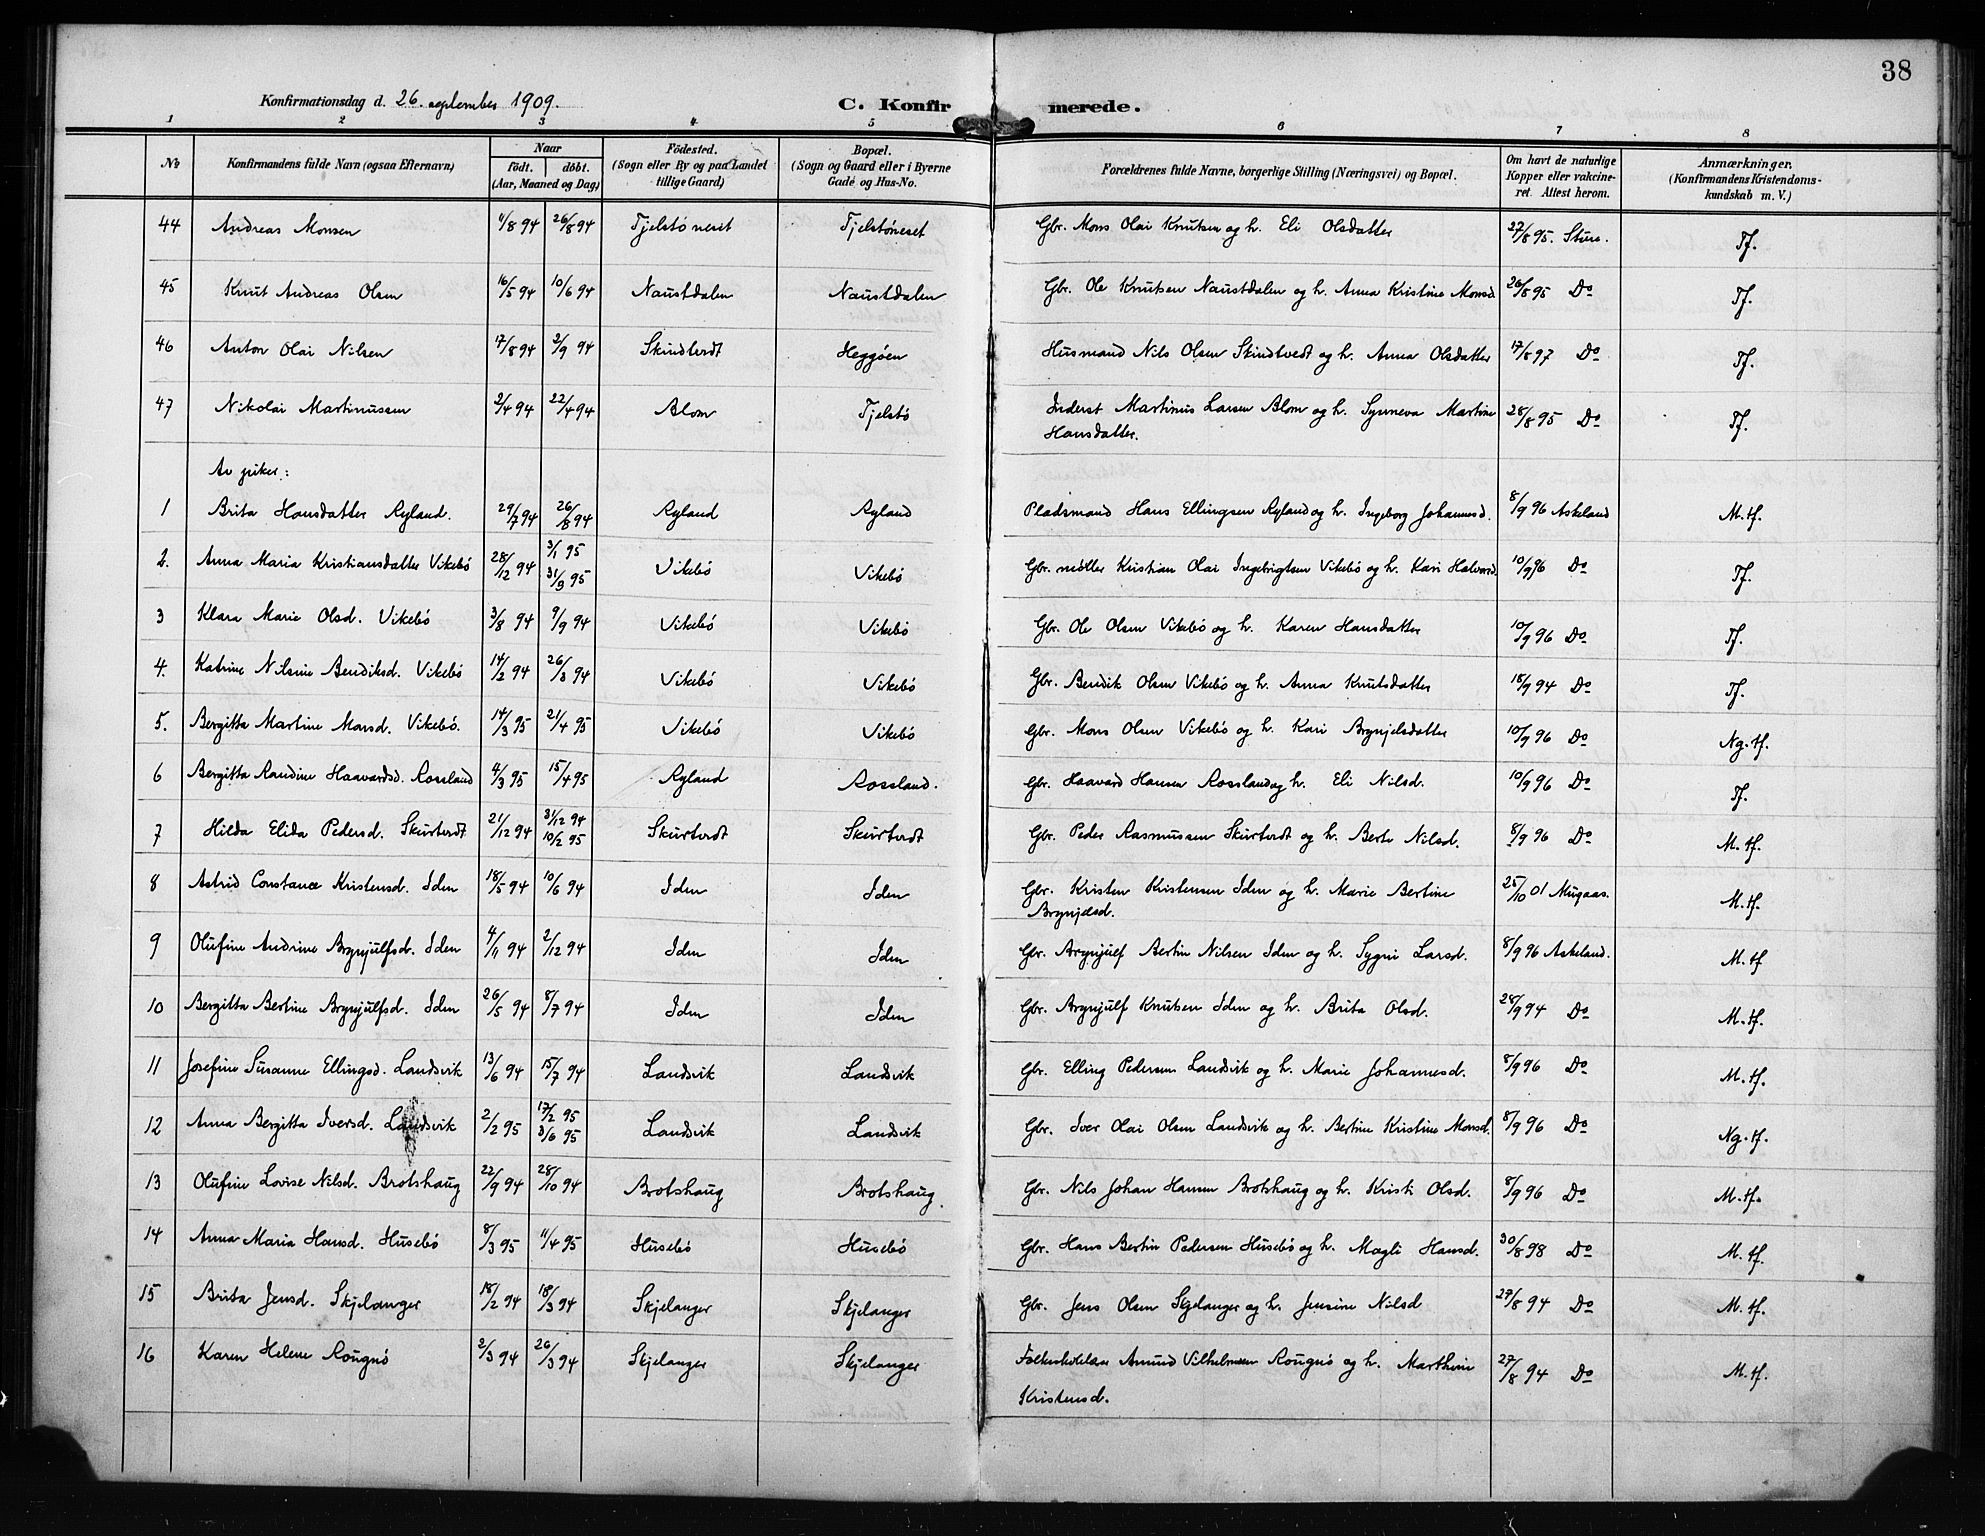 38
Konfirmationsdag d. 26. september 1909.
C. Konfirmerede.
1 2 3 4 5 6 7 8
No
Konfirmandens fulde Navn (ogsaa Efternavn)
Naar
födt. döbt.
(Aar, Maaned og Dag)
Födested.
(Sogn eller By og paa Landet
tillige Gaard)
Bopæl.
(Sogn og Gaard eller i Byerne
Gade og Hus-No.
Forældrenes fulde Navne, borgerlige Stilling (Næringsvei) og Bopæl.
Om havt de naturlige
Kopper eller vakcine-
ret. Attest herom.
Anmærkninger.
(Konfirmandens Kristendoms-
kundskab m. V.)
44 Andreas Monsen 1/8 94 26/8 94 Tjelstöneset Tjelstöneset Gbr. Mons Olai Knutsen og h. Eli Olsdatter 27/8 95. Sture. Tf.
45 Knut Andreas Olsen 16/5 94 10/6 94 Naustdalen Naustdalen Gbr. Ole Knutsen Naustdalen og h. Anna Kristine Monsd. 26/8 95 Do Tf.
46 Anton Olai Nilsen 17/8 94 2/9 94 Skindtvedt Heggöen Husmand Nils Olsen Skindtvedt og h. Anna Olsdatter 17/8 97 Do Tf.
47 Nikolai Martinussen 2/4 94 22/4 94 Blom Tjelstö Inderst Martinus Larsen Blom og h. Synneva Martine
Hansdatter. 28/8 95 Do Tf.
Av piker:
1 Brita Hansdatter Ryland. 29/7 94 26/8 94 Ryland Ryland Pladsmand Hans Ellingsen Ryland og h. Ingeborg Johannesd. 8/9 96 Askeland M.tf.
2. Anna Maria Kristiansdatter Vikebö 28/12 94 3/1 95
31/3 95 Vikebö Vikebö Gbr. möller Kristian Olai Ingebrigtsen Vikebö og h. Kari Halvorsd. 10/9 96 Do Tf.
3 Klara Marie Olsd. Vikebö 3/8 94 9/9 94 Vikebö Vikebö Gbr. Ole Olsen Vikebö og h. Karen Hansdatter 10/9 96 Do Tf.
4. Katrine Nilsine Bendiksd. Vikebö 14/2 94 26/3 94 Vikebö Vikebö Gbr. Bendik Olsen Vikebö og h. Anna Knutsdatter 18/9 94 Do Tf.
5. Bergitta Martine Monsd. Vikebö. 14/3 95 21/4 95 Vikebö Vikebö Gbr. Mons Olsen Vikebö og h. Kari Brynjelsdatter 10/9 96 Do Ng.tf.
6 Bergitta Randine Haavardsd. Rossland 4/3 95 15/4 95 Ryland Rossland. Gbr. Haavard Hansen Rossland og h. Eli Nilsd. 10/9 96 Do Tf.
7 Hilda Elida Pedersd. Skurtvedt 21/12 94 31/12 94
10/2 95 Skurtvedt Skurtvedt Gbr. Peder Rasmussen Skurtvedt og h. Berte Nilsd. 8/9 96 Do M.tf.
8 Astrid Constance Kristensd. Iden 18/5 94 10/6 94 Iden Iden Gbr. Kristen Kristensen Iden og h. Marie Bertine
Brynjelsd. 25/10 01 Mugaas. M.tf.
9 Olufine Andrine Brynjulfsd. Iden 4/11 94 2/12 94 Iden Iden Gbr. Brynjulf Bertin Nilsen Iden og h. Sygni Larsd. 8/9 96 Askeland. M.tf
10 Bergitta Bertine Brynjulfsd. Iden 26/5 94 8/7 94 Iden Iden Gbr. Brynjulf Knutsen Iden og h. Brita Olsd. 28/9 94 Do M.tf.
11 Josefine Susanne Ellingsd. Landsvik 13/6 94 15/7 94 Landsvik Landsvik Gbr. Elling Pedersen Landsvik og h. Marie Johannesd. 8/9 96 Do M.tf.
12 Anna Bergitta Iversd. Landsvik 2/2 95 17/2 95
3/6 95 Landsvik Landsvik Gbr. Iver Olai Olsen Landsvik og h. Bertine Kristine Monsd. 8/9 96 Do Ng.tf.
13 Olufine Lovise Nilsd. Brotshaug 22/9 94 28/10 94 Brotshaug Brotshaug. Gbr. Nils Johan Hansen Brotshaug og h. Kristi Olsd. 8/9 96 Do M.tf.
14 Anna Maria Hansd. Husebö 8/3 95 11/4 95 Husebö Husebö Gbr. Hans Bertin Pedersen Husebö og h. Magli Hansd. 30/8 98 Do M.tf.
15 Brita Jensd. Skjelanger 18/2 94 18/3 94 Skjelanger Skjelanger Gbr. Jens Olsen Skjelanger og h. Jensine Nilsd 27/8 94 Do M.tf.
16 Karen Helene Rougnö 2/3 94 26/3 94 Skjelanger Skjelanger Amund Vilhelmsen Rougnö og h. Marthine
Kristensd. 27/8 94 Do M.tf.